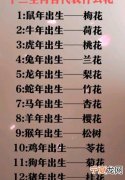 十二生肖各代表什么花
1:鼠年出生——梅花
2:牛年出生——荷花
3:虎年出生——桃花
4:兔年出生——兰花
5:龙年出生——梨花
6:蛇年出生——桂花
7:马年出生——杏花
8:羊年出生——棉花
9:猴年出生——松树
10:鸡年出生——苓花
11:狗年出生——菊花
12:猪年出生——葵花